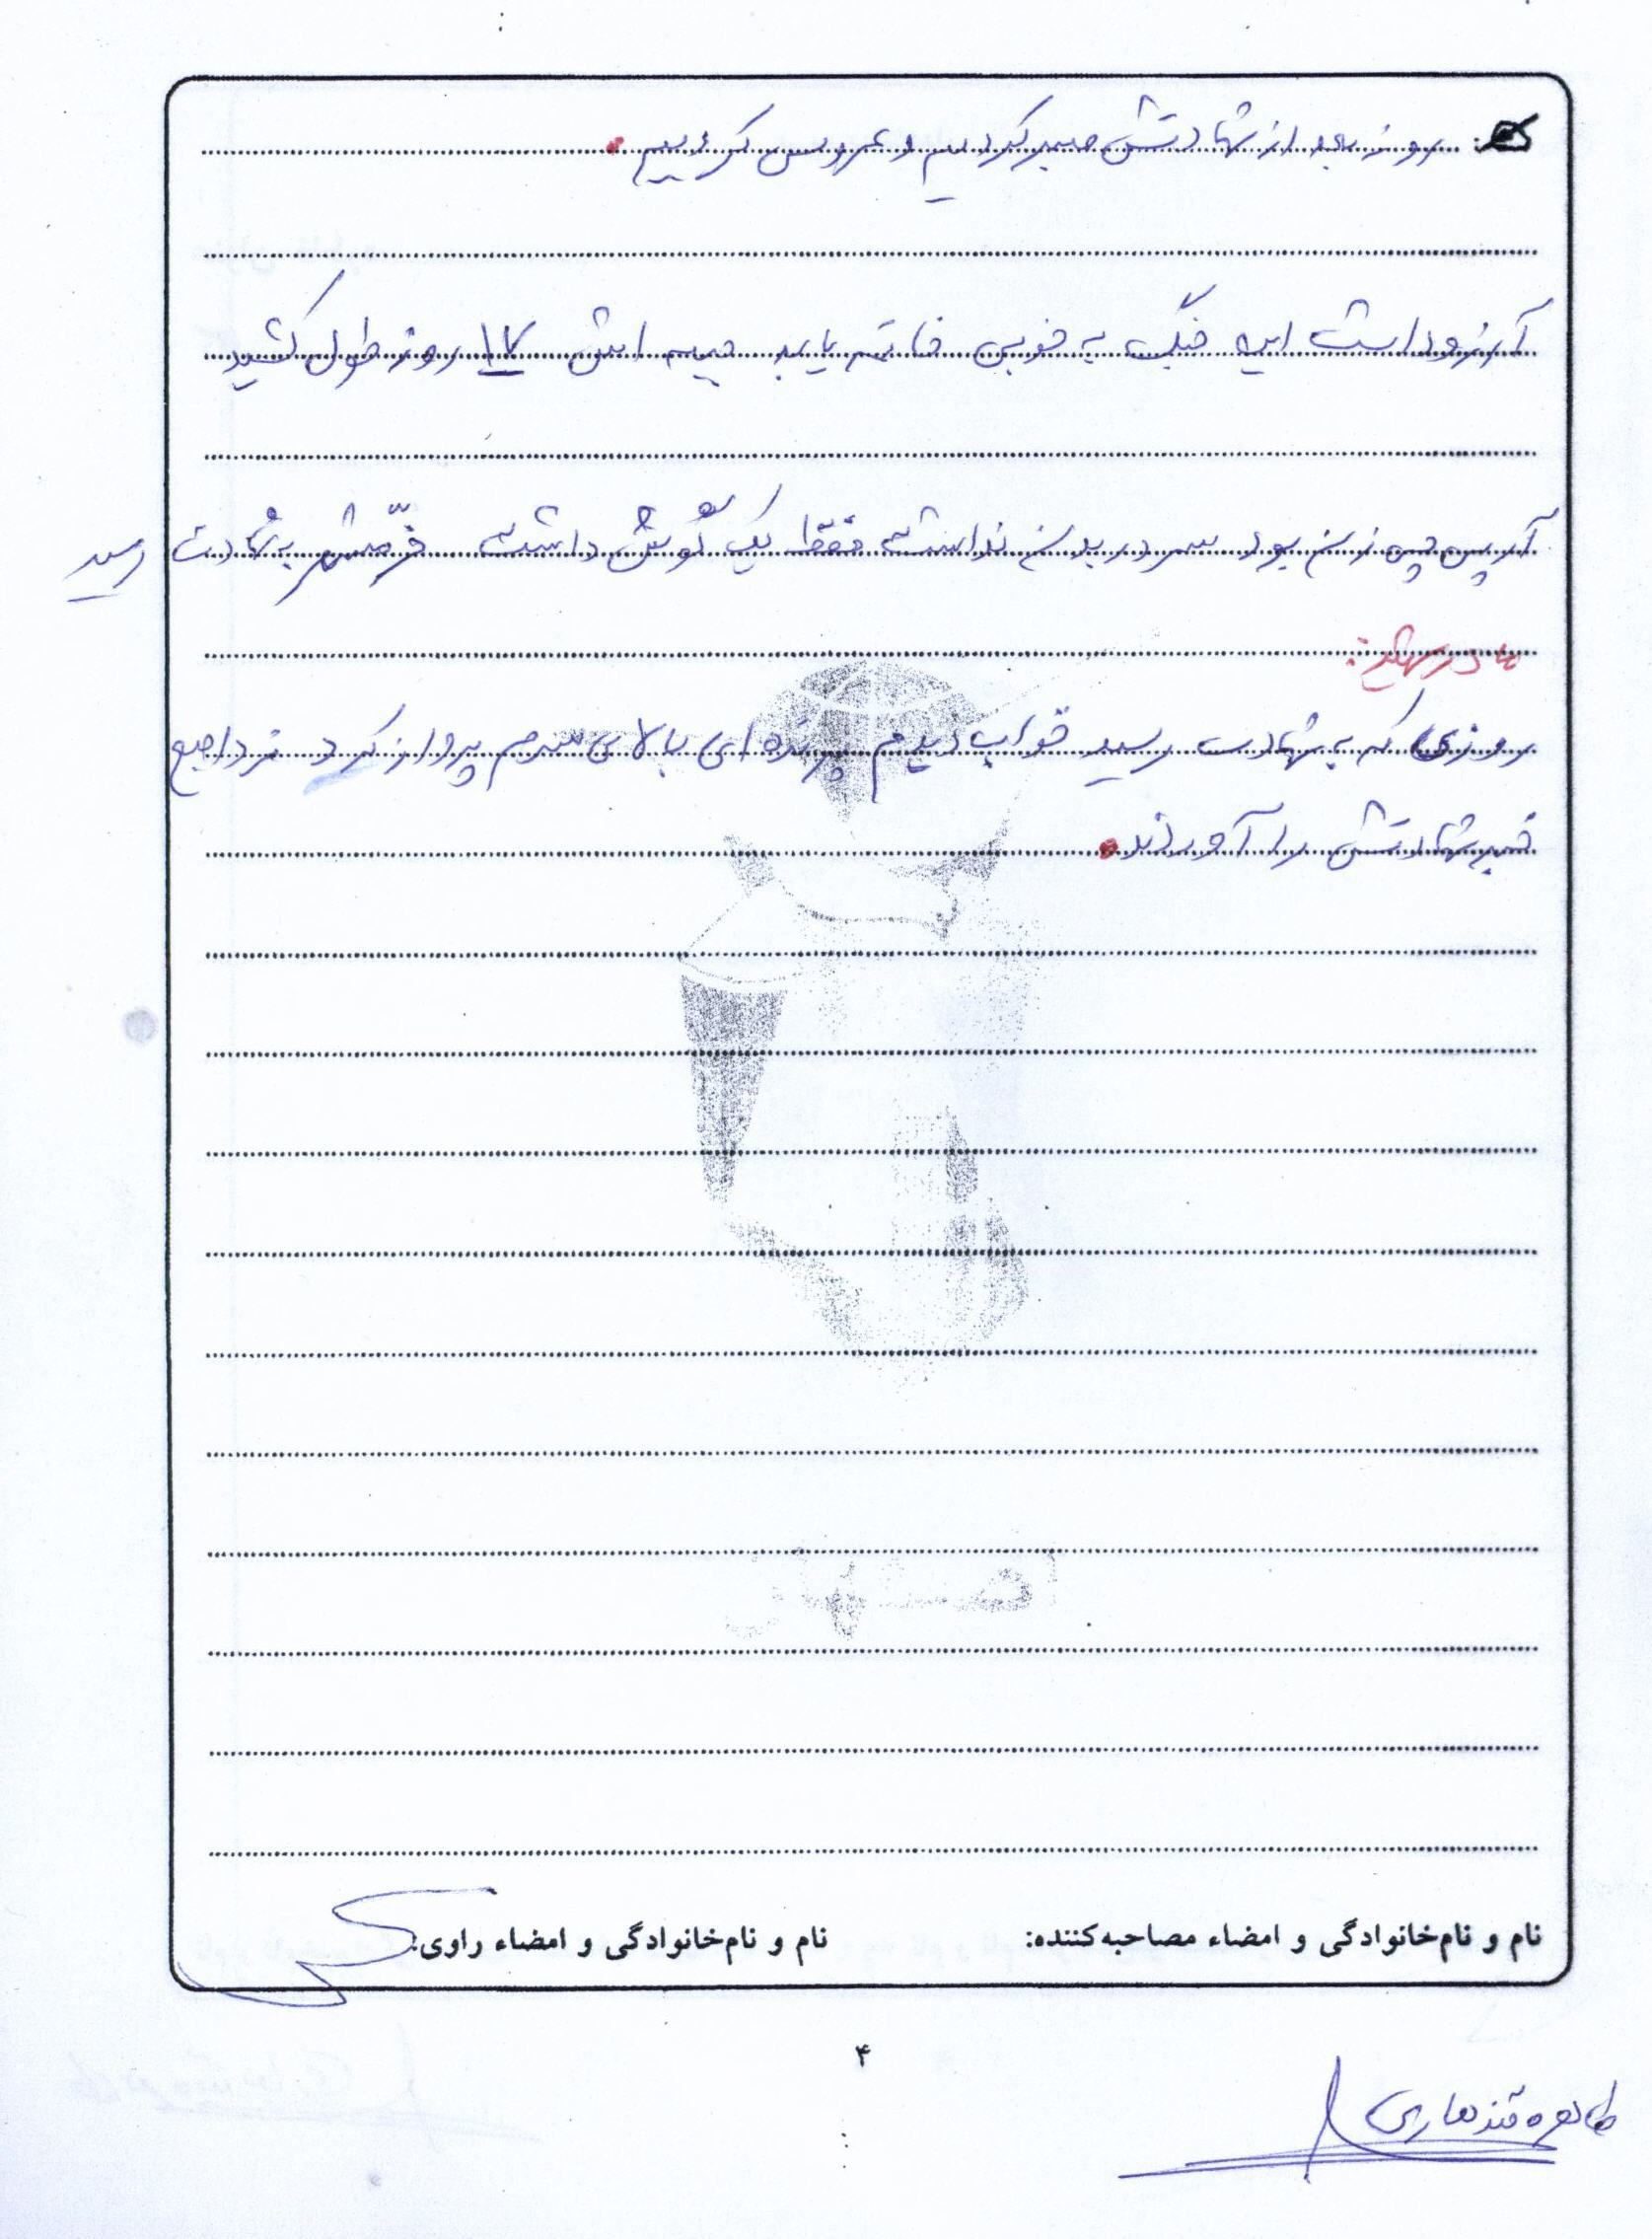 روز بعد از شهادتش صبر کردیم و عروسی کردیم.
آرزو داشت این جنگ به خوبی خاتمه یابد جبهه اش ۱۷ روز طول کشید
آرپی جی زن بود سر در بدن نداشت فقط یک گوش داشت به شهادت رسید
مادر شهید:
روزی که به شهادت رسید خواب دیدم پرنده ای بالای سرم پرواز کرد فردا صبح
خبر شهادتش را آوردند.
نام و نام‌خانوادگی و امضاء مصاحبه‌کننده: نام و نام‌خانوادگی و امضاء راوی:
۴
طاهره قندهاری